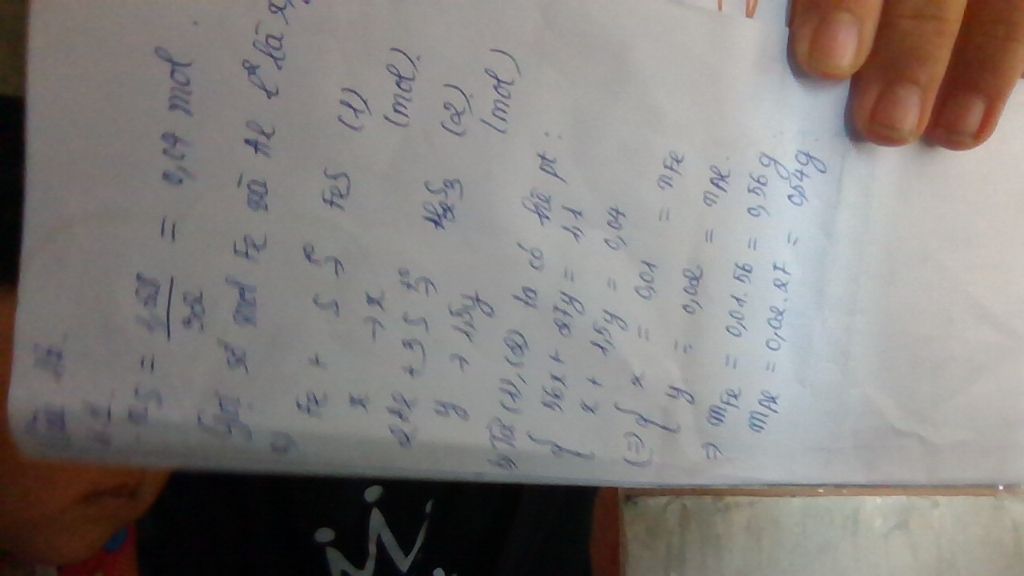 nS = 1,28 / 32 = 0,04 mol.
Gọi số mol Fe và Al lần lượt là x,
a) Fe + S t°→ FeS (1)
x → x (mol).
2Al + 3S t°→ Al2S3 (2)
y → 1,5y (mol)
b) Từ (1), (2) ta có hệ pt:
{ 56x + 27y = 1,1
x + 1,5y = 0,04
(=> { x = 0,01 = nFe
y = 0,02 = nAl.
=> mFe = 0,01.56 = 0,56g
mAl = 0,02.27 = 0,54g.